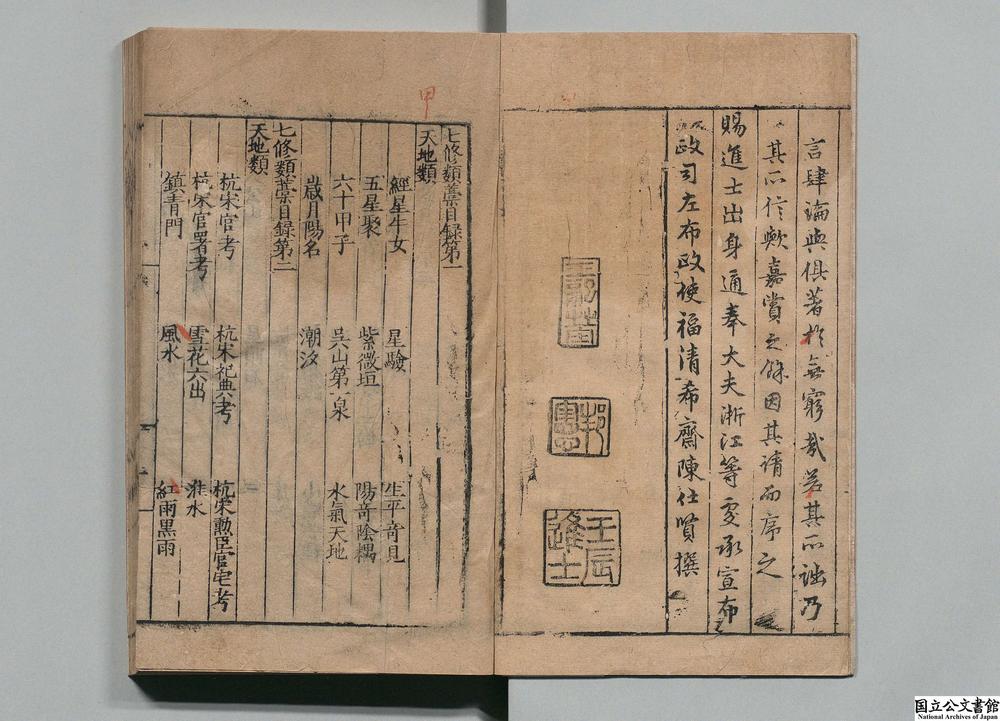 言肆論與俱著於無窮哉若其所詘乃
其所信歟嘉賞之餘因其請而序之
賜進士出身通奉大夫浙江等處承宣布
政司左布政使福清希齋陳仕賢撰
邦憲
壬辰進士
甲
七修類藁目録第一
天地類
經星牛女 星驗 生平奇見
五星聚 紫微垣 陽奇陰耦
六十甲子 吳山第一泉 水氣天地
歲月陽名 潮汐
七修類藁目録第二
天地類
杭宋官考 杭宋祀典考 杭宋勲臣官宅考
杭宋官署考 雪花六出 淮水
鎮青門 風水 紅雨黑雨
国立公文書館
National Archives of Japan